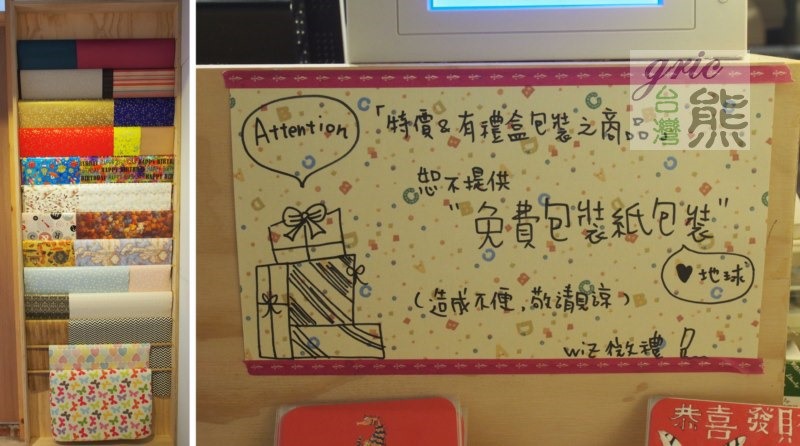 HAPPY BIRTHDAY
gric
台灣熊
Attention
「特價&有禮盒包裝之商品
恕不提供
"免費包裝紙包裝"
♥地球
(造成不便,敬請見諒)
wiz 微禮
恭喜發財